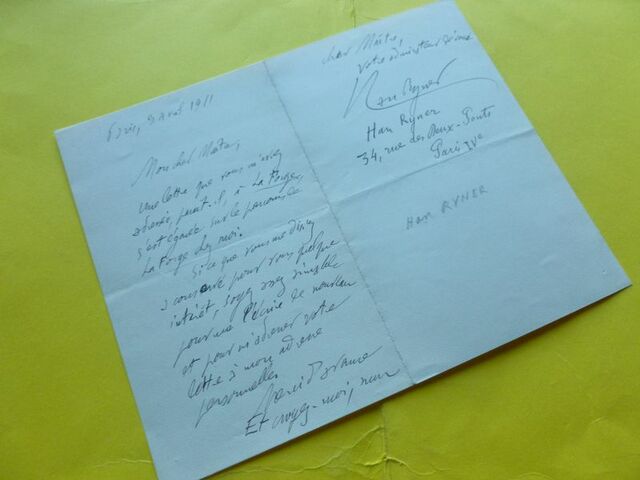 Paris, 9 avril 1911
Mon cher Maître,
Une lettre que vous m'aviez
adressée, paraît-il, à La Forge,
s'est égarée sur le parcours de
La Forge chez moi.
Si ce que vous me disiez
a conservé pour vous quelque
intérêt, soyez assez aimable
pour me l'écrire de nouveau
et pour m'adresser votre
lettre à mon adresse
personnelle.
Merci d'avance
Et croyez-moi, mon
cher Maître,
votre admirateur dévoué
Han Ryner
Han Ryner
34, rue des Deux-Ponts
Paris IVe
Han RYNER